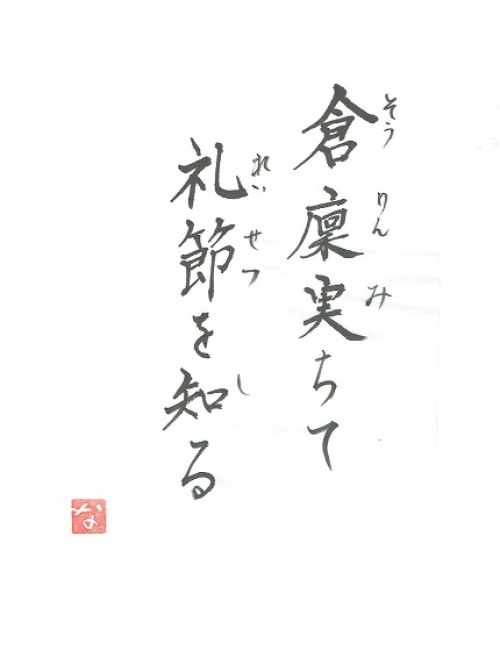 倉廩実ちて
そうりんみ
礼節を知る
れいせつし
な